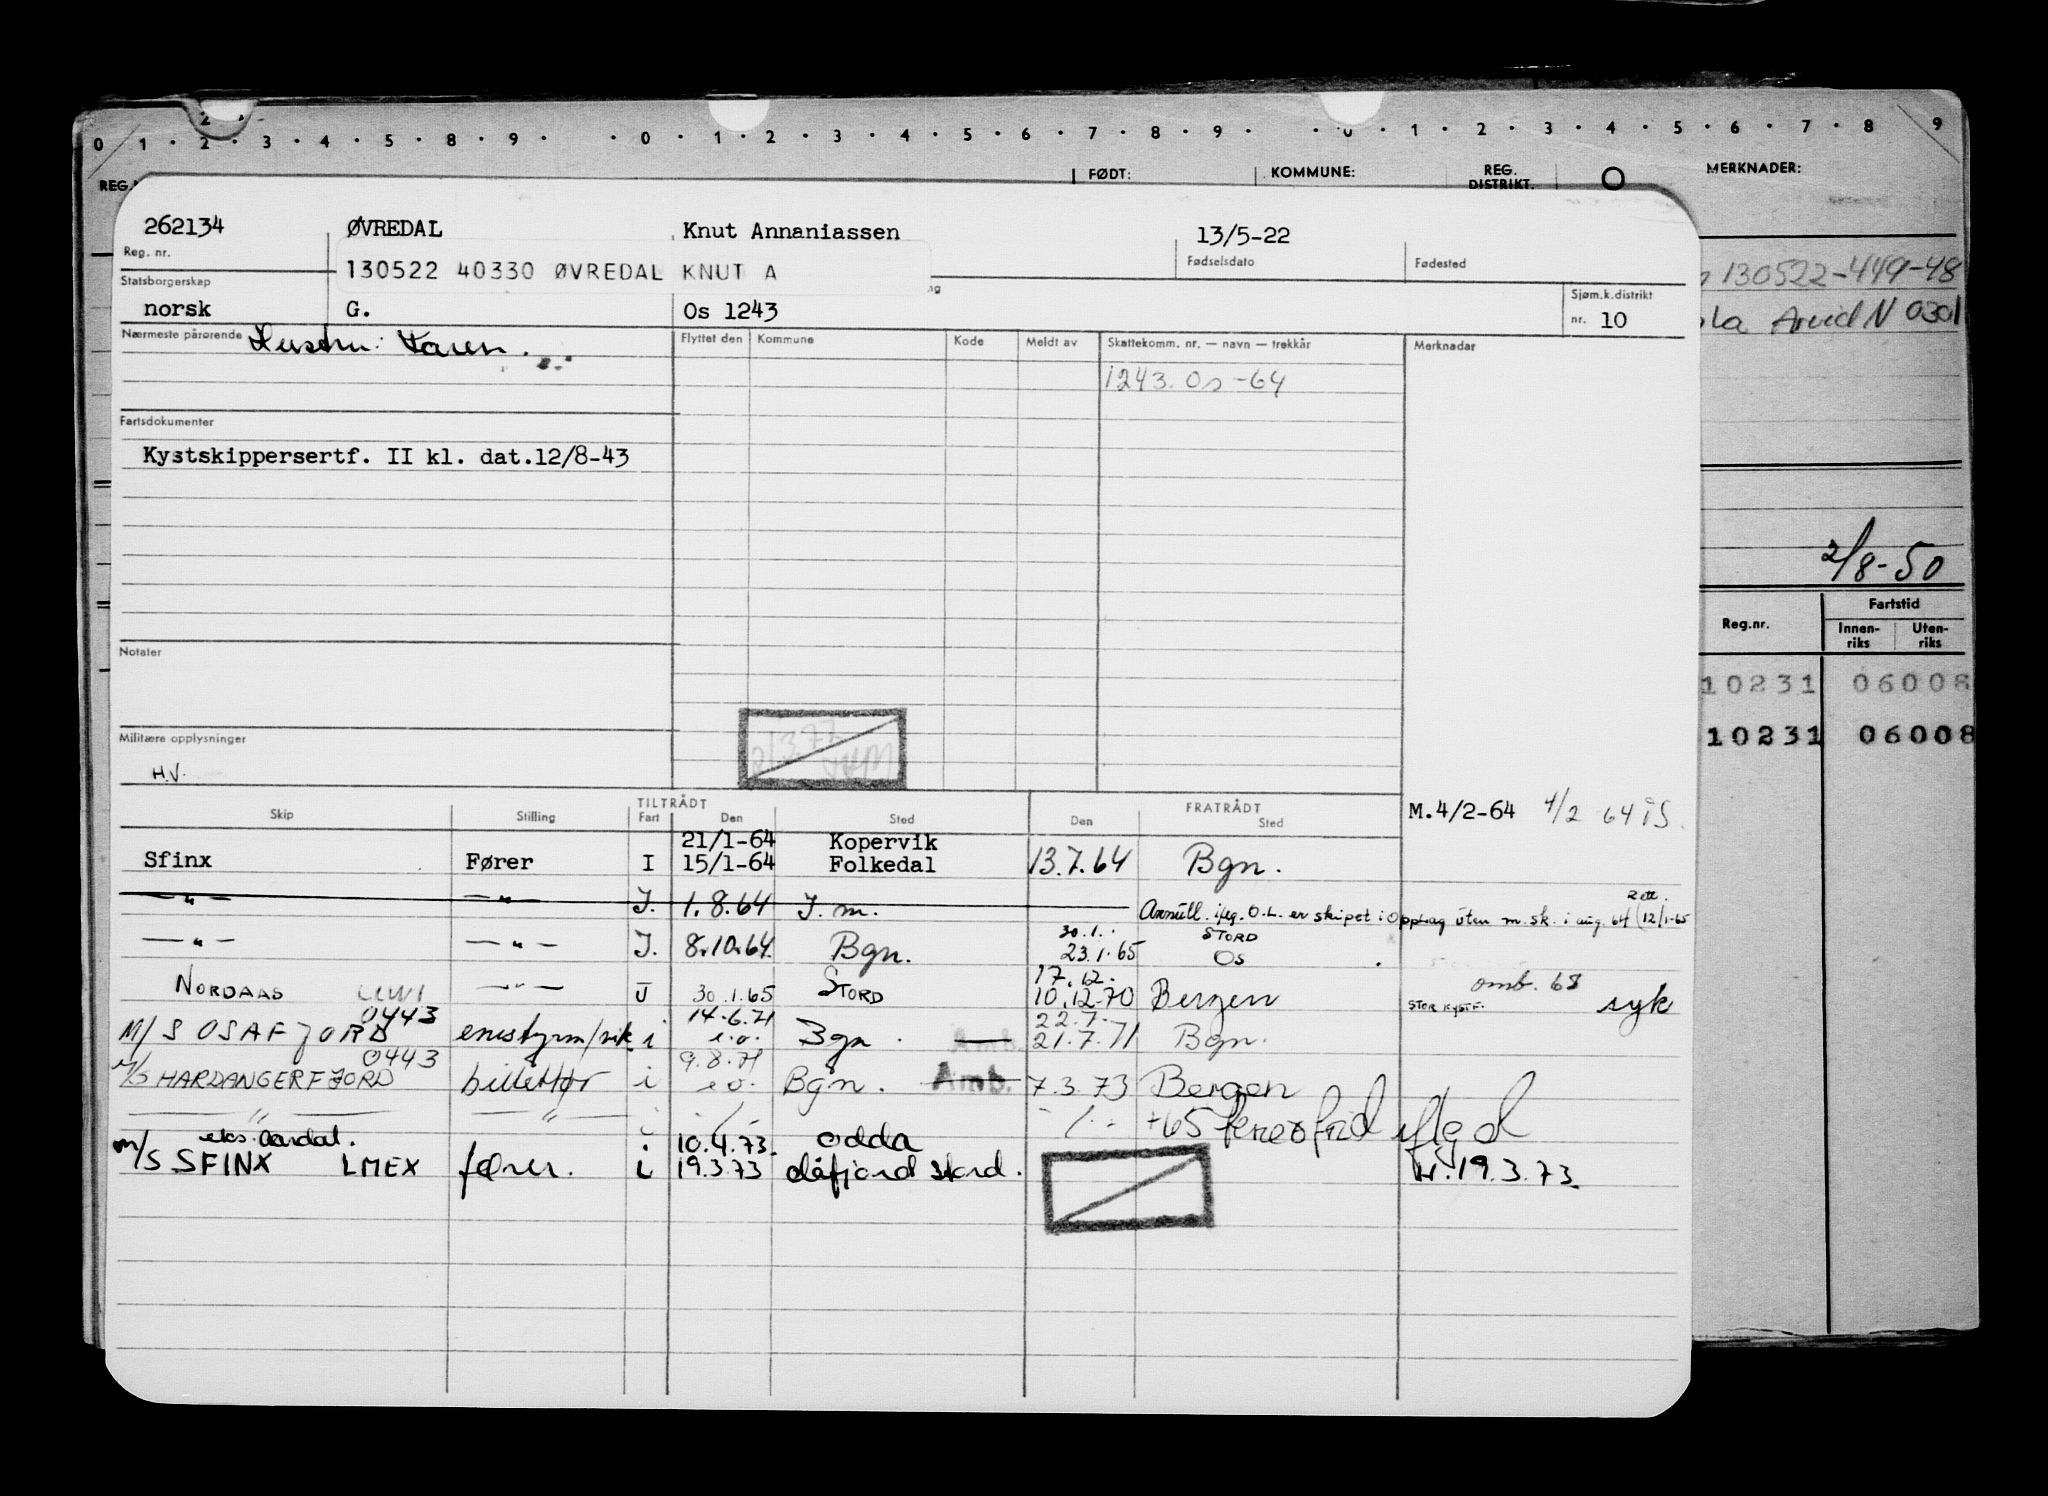 0 1 · 2 · 3 · 4 · 5 · 8 · 9 · · 0 · 1 · 2 · 3 · 4 · 5 · 6 · 7 · 8 · 9 · · 0 · 1 · 2 · 3 · 4 · 5 · 6 · 7 · 8 9
FØDT: KOMMUNE: REG. DISTRIKT. MERKNADER:
262134 ØVREDAL Knut Annaniassen 13/5-22
Reg. nr. Fødselsdato Fødested
130522 40330 ØVREDAL KNUT A
130522-449-48
Statsborgerskap Sjøm.k.distrikt
norsk G. Os 1243 nr. 10
Arvid N 0301
Nærmeste pårørende Hustru: Karen. Flyttet den Kommune Kode Meldt av Skattekomm. nr. — navn — trekkår Merknadar
1243. Os -64
Fartsdokumenter
Kystskippersertf. II kl. dat.12/8-43
2/8-50
Reg.nr. Fartstid
Innen-riks Uten-riks
Notater
10231 06008
10231 06008
Militære opplysninger
H.V.
TILTRÅDT FRATRÅDT
Skip Stilling Fart Den Sted Den Sted
M.4/2-64 4/2 64 ÅS.
21/1-64 Kopervik
Sfinx Fører I 15/1-64 Folkedal 13.7.64 Bgn.
— " — — " — I. 1.8.64 I. m. Annull. iflg. O.L. er skipet i opplag uten m. sk. i aug. 64 (12/1-65
30.1. STORD
— " — — " — I. 8.10.64 Bgn. 23.1.65 Os
17.12. omb. 68
NORDAAS — " — J 30.1.65 STORD 10.12.70 Bergen STOR KYSTF. syk
0443 14.6.71 22.7.
M/S OSAFJORD i i.o. Bgn. — 21.7.71 Bgn.
0443 9.8.71
M/S HARDANGERFJORD billettør i i.o. Bgn. Amb. 7.3.73 Bergen
— " — — " — +65
eks. Aardal. 10.4.73. Odda
M/S SFINX LMEX fører. i 19.3.73 stord. 19.3.73.